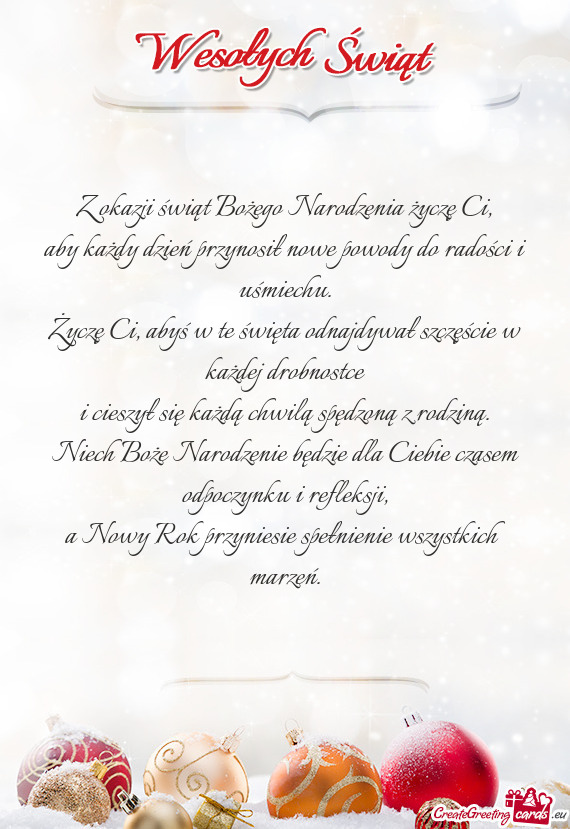 Wesołych Świąt
Z okazji świąt Bożego Narodzenia życzę Ci,
aby każdy dzień przynosił nowe powody do radości i
uśmiechu.
Życzę Ci, abyś w te święta odnajdywał szczęście w
każdej drobnostce
i cieszył się każdą chwilą spędzoną z rodziną.
Niech Boże Narodzenie będzie dla Ciebie czasem
odpoczynku i refleksji,
a Nowy Rok przyniesie spełnienie wszystkich
marzeń.
CreateGreeting cards .eu